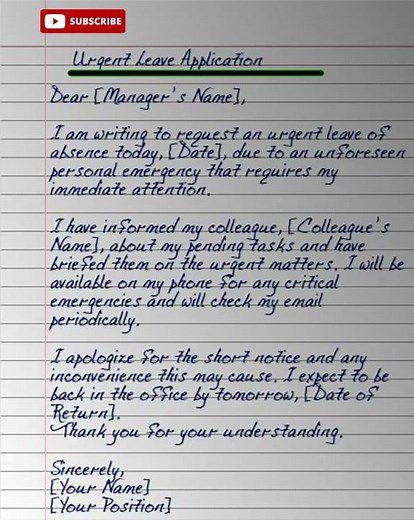 SUBSCRIBE
Urgent Leave Application
Dear [Manager's Name],
I am writing to request an urgent leave of
absence today, [Date], due to an unforeseen
personal emergency that requires my
immediate attention.
I have informed my colleague, [Colleague's
Name], about my pending tasks and have
briefed them on the urgent matters. I will be
available on my phone for any critical
emergencies and will check my email
periodically.
I apologize for the short notice and any
inconvenience this may cause. I expect to be
back in the office by tomorrow, [Date of
Return].
Thank you for your understanding.
Sincerely,
[Your Name]
[Your Position]